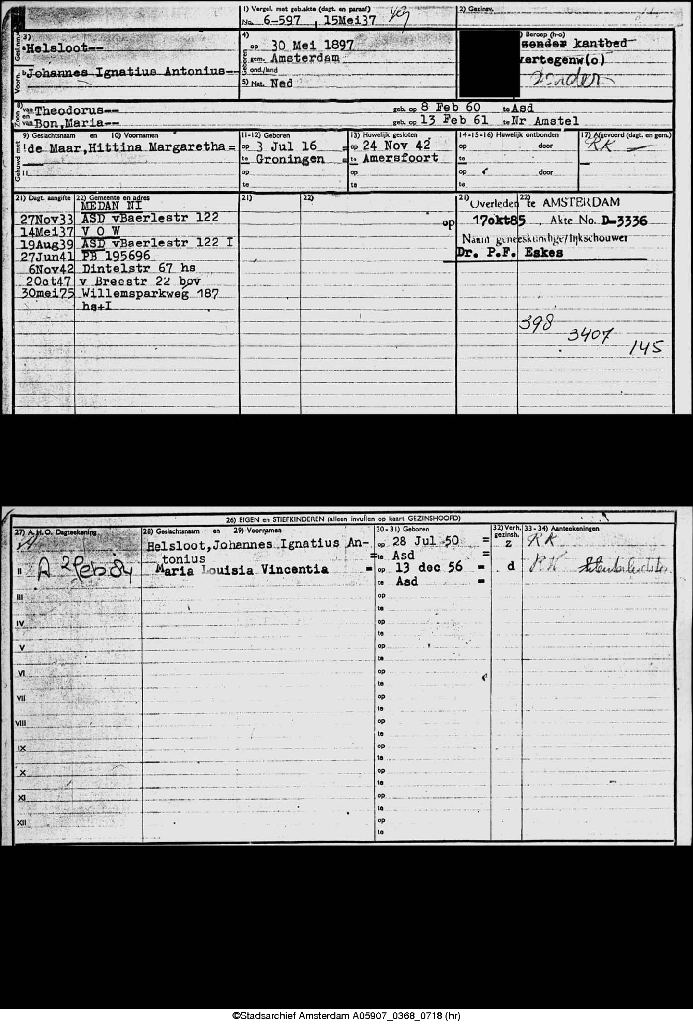 1) Vergel. met geb.akte (dagt. en paraaf)
No. 6-597 15Mei37
2) Gezinsv.
3)
Helsloot--
Johannes Ignatius Antonius--
4)
op 30 Mei 1897
gem. Amsterdam
ond./land
5) Nat. Ned
Beroep (h-o)
zonder kantbed
vertegenw(o)
zonder
8) van Theodorus-- geb. op 8 Feb 60 te Asd
en
van Bon, Maria-- geb. op 13 Feb 61 te Nr Amstel
9) Geslachtsnaam en 10) Voornamen
de Maar, Hittina Margaretha=
11-12) Geboren
op 3 Jul 16 =
te Groningen =
op
te
13) Huwelijk gesloten
op 24 Nov 42
te Amersfoort
op
te
14-15-16) Huwelijk ontbonden
op door
te
op door
te
17) Afgevoerd (dagt. en gem.)
RK —
21) Dagt. aangifte 22) Gemeente en adres
MEDAN NI
27Nov33 ASD vBaerlestr 122
14Mei37 V O W
19Aug39 ASD vBaerlestr 122 I
27Jun41 PB 195696
6Nov42 Dintelstr 67 hs
20ct47 v Breestr 22 bov
30mei75 Willemsparkweg 187
hs+I
21) 22)
21) 22)
Overleden te AMSTERDAM
op 17okt85 Akte No. D-3336
Naam geneeskundige/lijkschouwer
Dr. P.F. Eskes
398
3407
145
26) EIGEN en STIEFKINDEREN (alleen invullen op kaart GEZINSHOOFD)
27) A.H.O. Dagteekening 28) Geslachtsnaam en 29) Voornamen 30-31) Geboren 32) Verh. gezinsh. 33-34) Aanteekeningen
Helsloot, Johannes Ignatius An- op 28 Jul 50 = z RK
tonius = te Asd =
II A 2feb84 Maria Louisia Vincentia = op 13 dec 56 = d RK
te Asd =
III op
te
IV op
te
V op
te
VI op
te
VII op
te
VIII op
te
IX op
te
X op
te
XI op
te
XII op
te
©Stadsarchief Amsterdam A05907_0368_0718 (hr)